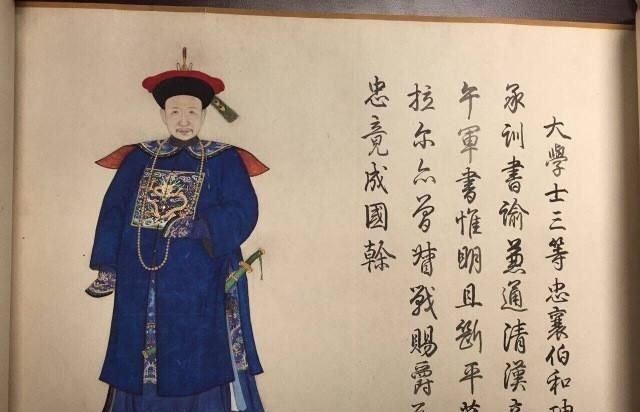 大學士三等忠襄伯和珅
承訓書諭兼通清漢
午軍書惟明且斷平
拉尔亦曽督戰賜爵
忠竟成國幹